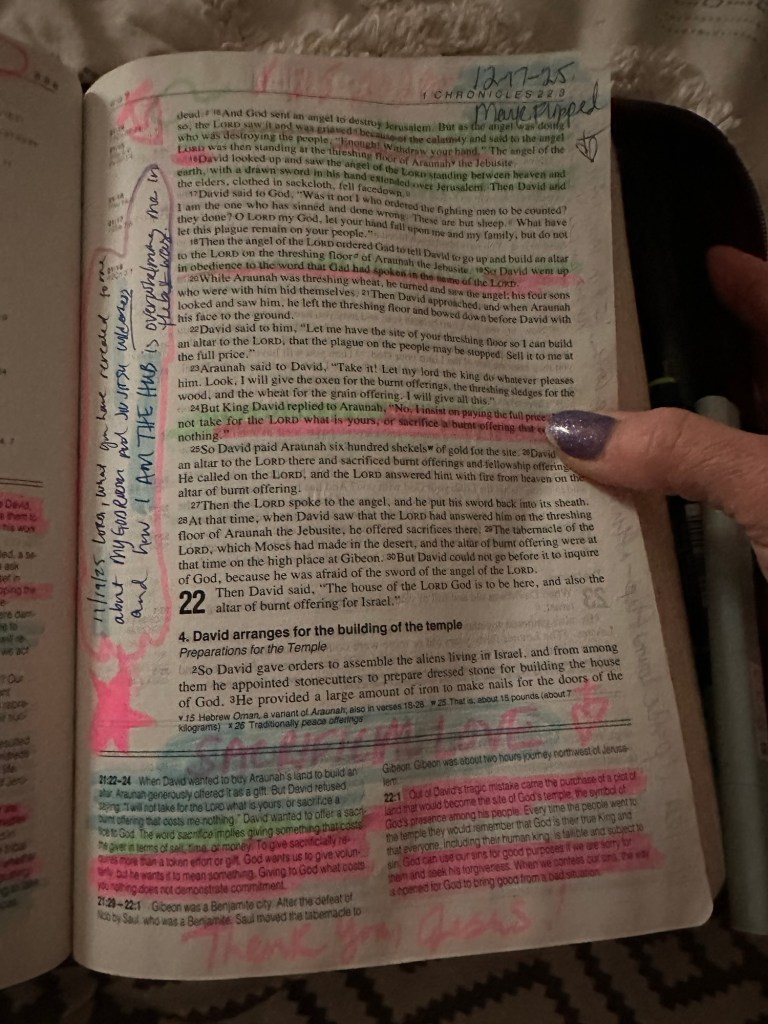 12-17-25
1 CHRONICLES 22:3
Mark Flipped
dead. 15And God sent an angel to destroy Jerusalem. But as the angel was doing
so, the LORD saw it and was grieved because of the calamity and said to the angel
who was destroying the people, "Enough! Withdraw your hand." The angel of the
LORD was then standing at the threshing floor of Araunah the Jebusite.
16David looked up and saw the angel of the LORD standing between heaven and
earth, with a drawn sword in his hand extended over Jerusalem. Then David and
the elders, clothed in sackcloth, fell facedown.
17David said to God, "Was it not I who ordered the fighting men to be counted?
I am the one who has sinned and done wrong. These are but sheep. What have
they done? O LORD my God, let your hand fall upon me and my family, but do not
let this plague remain on your people."
18Then the angel of the LORD ordered Gad to tell David to go up and build an altar
to the LORD on the threshing floor of Araunah the Jebusite. 19So David went up
in obedience to the word that Gad had spoken in the name of the LORD.
20While Araunah was threshing wheat, he turned and saw the angel; his four sons
who were with him hid themselves. 21Then David approached, and when Araunah
looked and saw him, he left the threshing floor and bowed down before David with
his face to the ground.
22David said to him, "Let me have the site of your threshing floor so I can build
an altar to the LORD, that the plague on the people may be stopped. Sell it to me at
the full price."
23Araunah said to David, "Take it! Let my lord the king do whatever pleases
him. Look, I will give the oxen for the burnt offerings, the threshing sledges for the
wood, and the wheat for the grain offering. I will give all this."
24But King David replied to Araunah, "No, I insist on paying the full price
not take for the LORD what is yours, or sacrifice a burnt offering that
nothing."
25So David paid Araunah six hundred shekels of gold for the site. 26David
an altar to the LORD there and sacrificed burnt offerings and fellowship offering
He called on the LORD, and the LORD answered him with fire from heaven on the
altar of burnt offering.
27Then the LORD spoke to the angel, and he put his sword back into its sheath.
28At that time, when David saw that the LORD had answered him on the threshing
floor of Araunah the Jebusite, he offered sacrifices there. 29The tabernacle of the
LORD, which Moses had made in the desert, and the altar of burnt offering were at
that time on the high place at Gibeon. 30But David could not go before it to inquire
of God, because he was afraid of the sword of the angel of the LORD.
22 Then David said, "The house of the LORD God is to be here, and also the
altar of burnt offering for Israel."
4. David arranges for the building of the temple
Preparations for the Temple
2So David gave orders to assemble the aliens living in Israel, and from among
them he appointed stonecutters to prepare dressed stone for building the house
of God. 3He provided a large amount of iron to make nails for the doors of the
v 15 Hebrew Ornan, a variant of Araunah; also in verses 18-28 w 25 That is, about 15 pounds (about 7
kilograms) x 26 Traditionally peace offerings
SACRIFICIAL LOVE
21:22-24 When David wanted to buy Araunah's land to build an
altar, Araunah generously offered it as a gift. But David refused,
saying, "I will not take for the LORD what is yours, or sacrifice a
burnt offering that costs me nothing." David wanted to offer a sacri-
fice to God. The word sacrifice implies giving something that costs
the giver in terms of self, time, or money. To give sacrificially re-
quires more than a token effort or gift. God wants us to give volun-
tarily, but he wants it to mean something. Giving to God what costs
you nothing does not demonstrate commitment.
21:29-22:1 Gibeon was a Benjamite city. After the defeat of
Nob by Saul, who was a Benjamite, Saul moved the tabernacle to
Gibeon. Gibeon was about two hours journey northwest of Jerusa-
lem.
22:1 Out of David's tragic mistake came the purchase of a plot of
land that would become the site of God's temple, the symbol of
God's presence among his people. Every time the people went to
the temple they would remember that God is their true King and
that everyone, including their human king, is fallible and subject to
sin. God can use our sins for good purposes if we are sorry for
them and seek his forgiveness. When we confess our sins, the way
is opened for God to bring good from a bad situation.
Thank You, Jesus!
11/19/25 Lord, what you have revealed to me
about my GODREAM and
and how I AM THE HUB is overwhelming me in